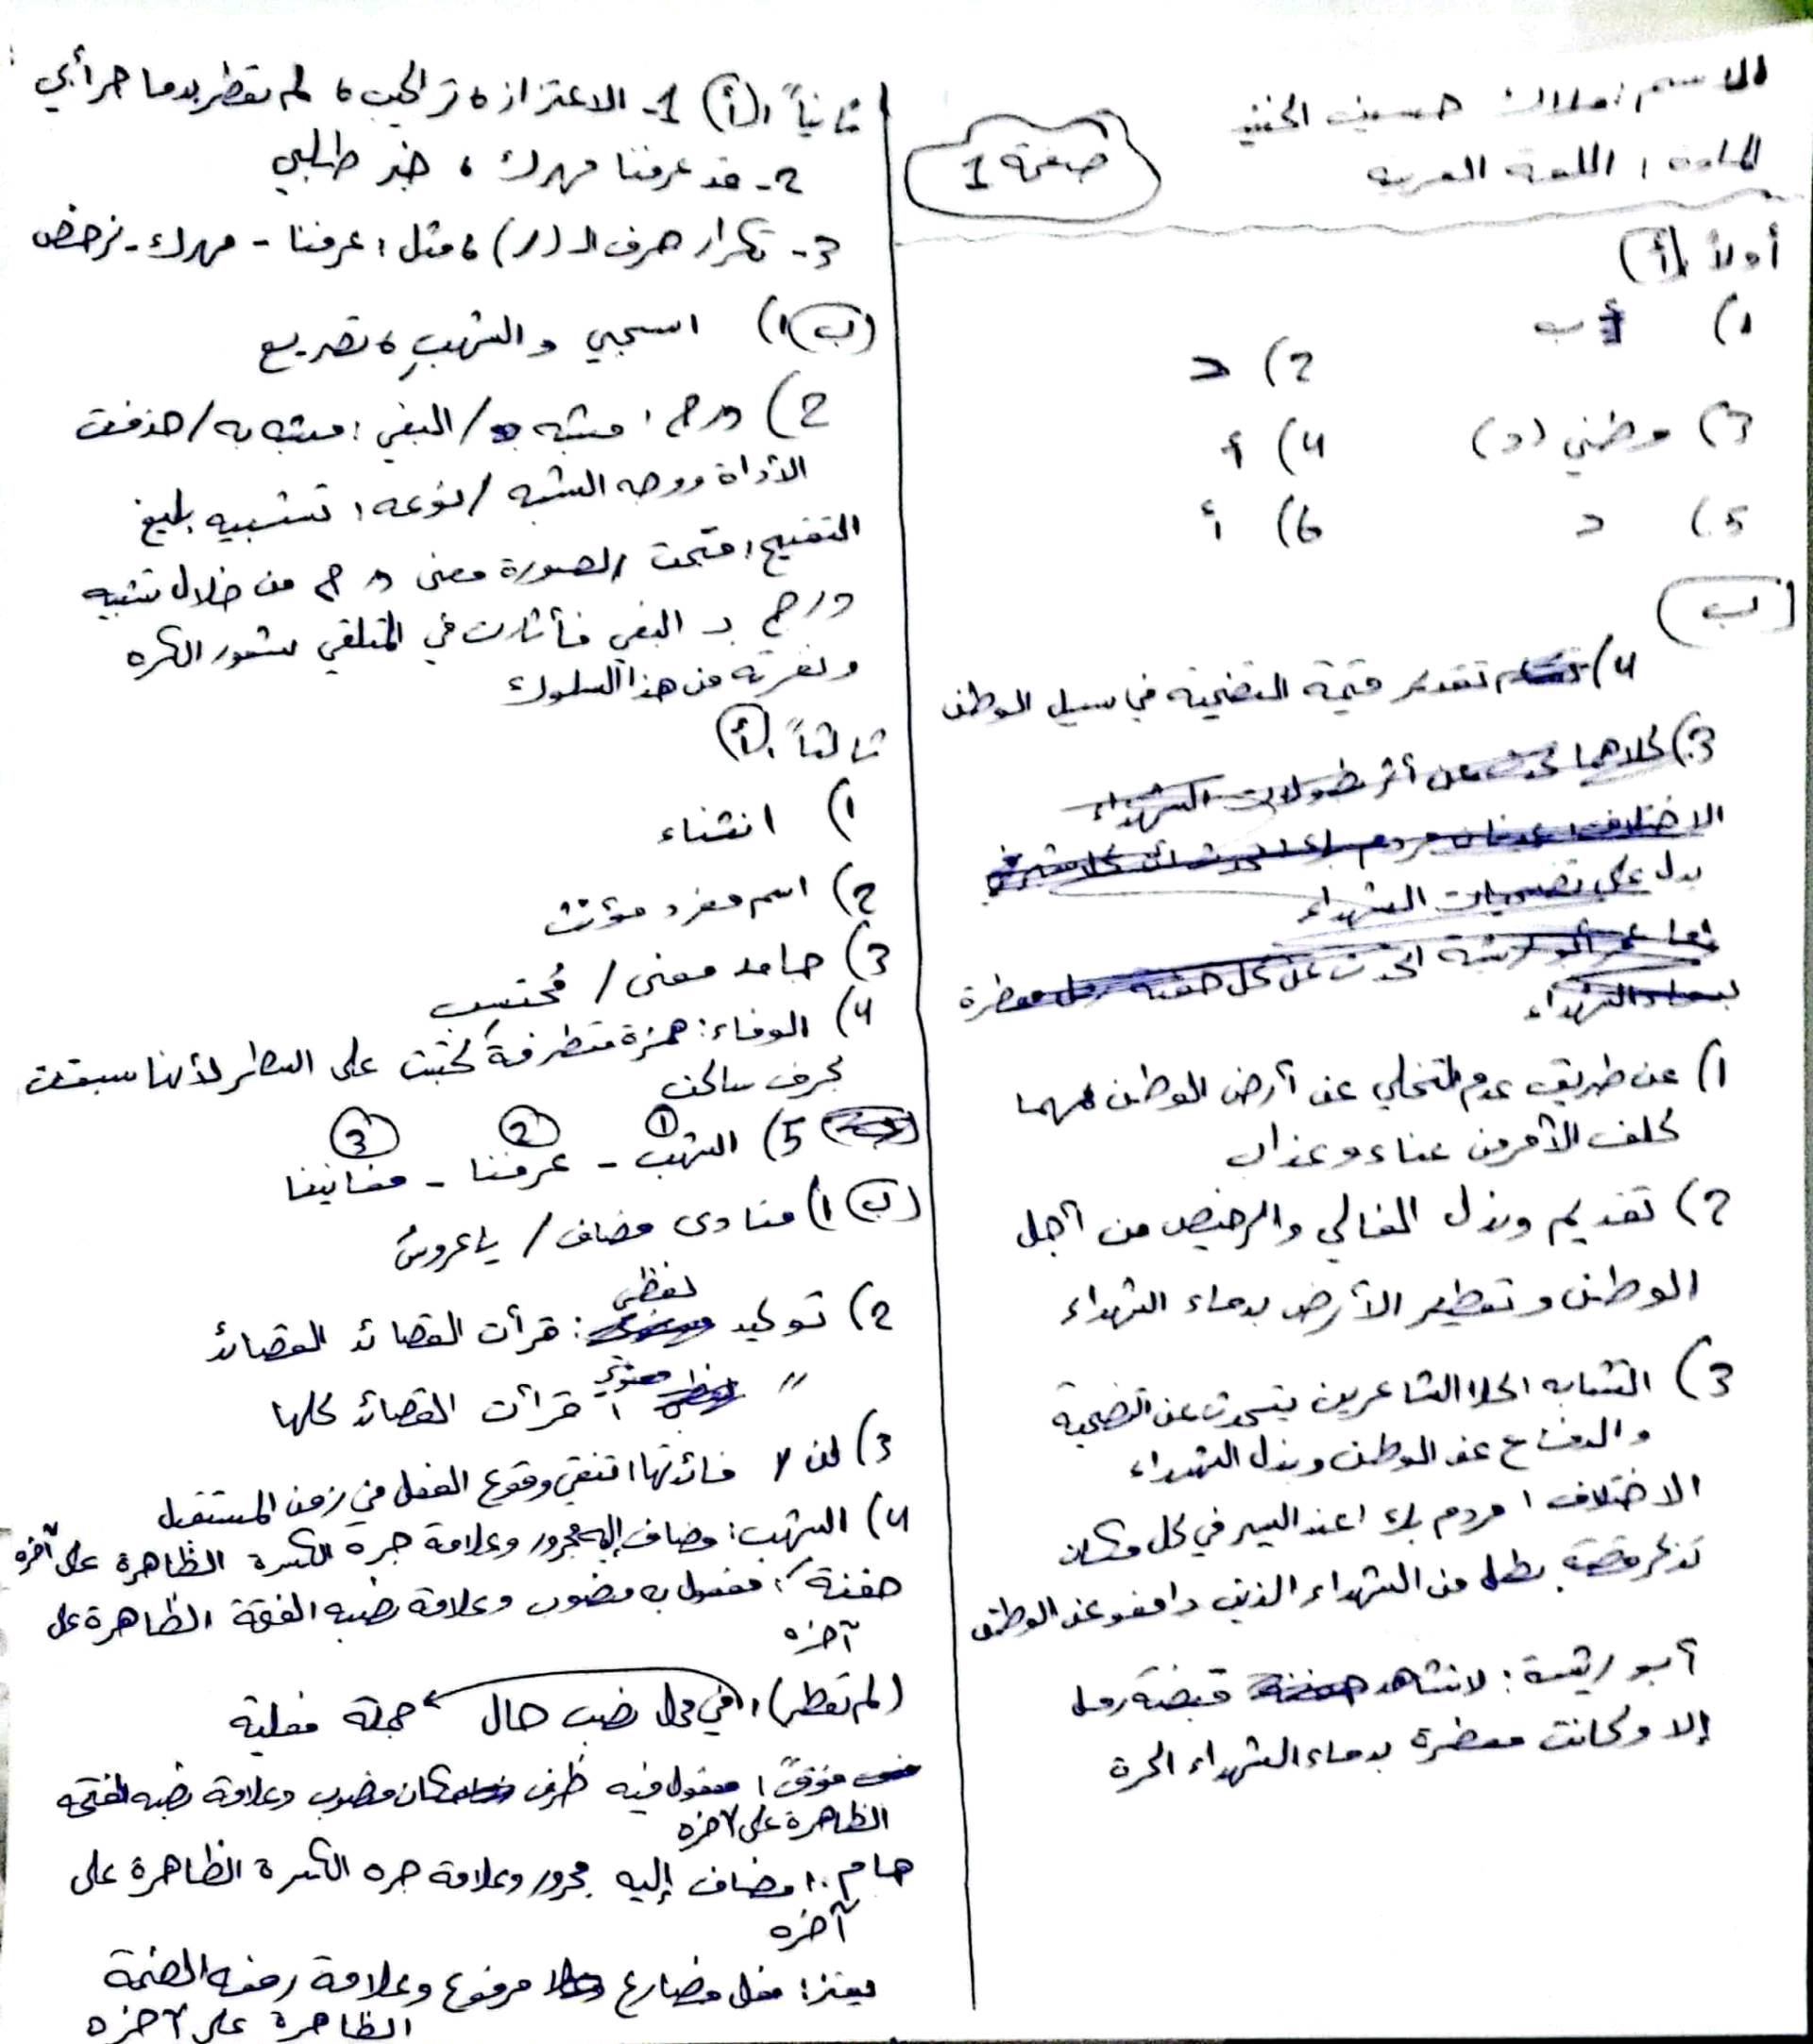 الاسم: ملاك حسين
المادة: اللغة العربية
صفحة 1
أولاً (أ)
1) ب
2) د
3) وطني (د)
4) أ
5) د
6) أ
(ب)
4) تقدير قيمة التضحية في سبيل الوطن
3) كلاهما تحدث عن أثر بطولات الشهداء
يدل على تضحيات الشهداء
بدماء الشهداء
1) عن طريق عدم التخلي عن أرض الوطن مهما
كلف الأمر من عناء وعذاب
2) تقديم وبذل الغالي والرخيص من أجل
الوطن وتعطير الأرض بدماء الشهداء
3) التشابه: كلا الشاعرين يتحدث عن التضحية
والدفاع عن الوطن وبذل الشهداء
الاختلاف: مردم بك: عند السير في كل مكان
تذكر قصة بطل من الشهداء الذين دافعو عن الوطن
أبو ريشة: لا نشاهد قبضة رمل
إلا وكانت معطرة بدماء الشهداء الحرة
ثانياً: (أ) 1- الاعتزاز، لم تعطر بدما حر أبي
2- قد عرفنا مهرك، خبر طلبي
3- تكرار حرف الـ (ر)، مثل: عرفنا - مهرك - نرخص
(ب) 1) اسحبي والشهبِ، تصريع
2) مشبه / البغي: مشبه به / حذفت
الأداة ووجه الشبه / نوعه: تشبيه بليغ
التقبيح: قبحت الصورة معنى من خلال تشبيه
بـ البغي فأثارت في المتلقي شعور الكره
ونفرته من هذا السلوك
ثالثاً: (أ)
1) انشاء
2) اسم مفرد مؤنث
3) جامد معنى / مُحتسِب
4) الوفاء: همزة متطرفة كُتبت على السطر لأنها سبقت
بحرف ساكن
5) الشهب - عرفنا - مغانينا
① ② ③
(ب) 1) منادى مضاف / يا عروسَ
2) توكيد لفظي: قرأت القصائد القصائد
" معنوي: قرأت القصائد كلها
3) لن / فائدتها: تنفي وقوع الفعل في زمن المستقبل
4) الشهب: مضاف إليه مجرور وعلامة جره الكسرة الظاهرة على آخره
حفنةً: مفعول به منصوب وعلامة نصبه الفتحة الظاهرة على
آخره
(لم تعطر): في محل نصب حال جملة فعلية
فوقَ: مفعول فيه ظرف مكان منصوب وعلامة نصبه الفتحة
الظاهرة على آخره
هام: مضاف إليه مجرور وعلامة جره الكسرة الظاهرة على
آخره
فعل مضارع مرفوع وعلامة رفعه الضمة
الظاهرة على آخره